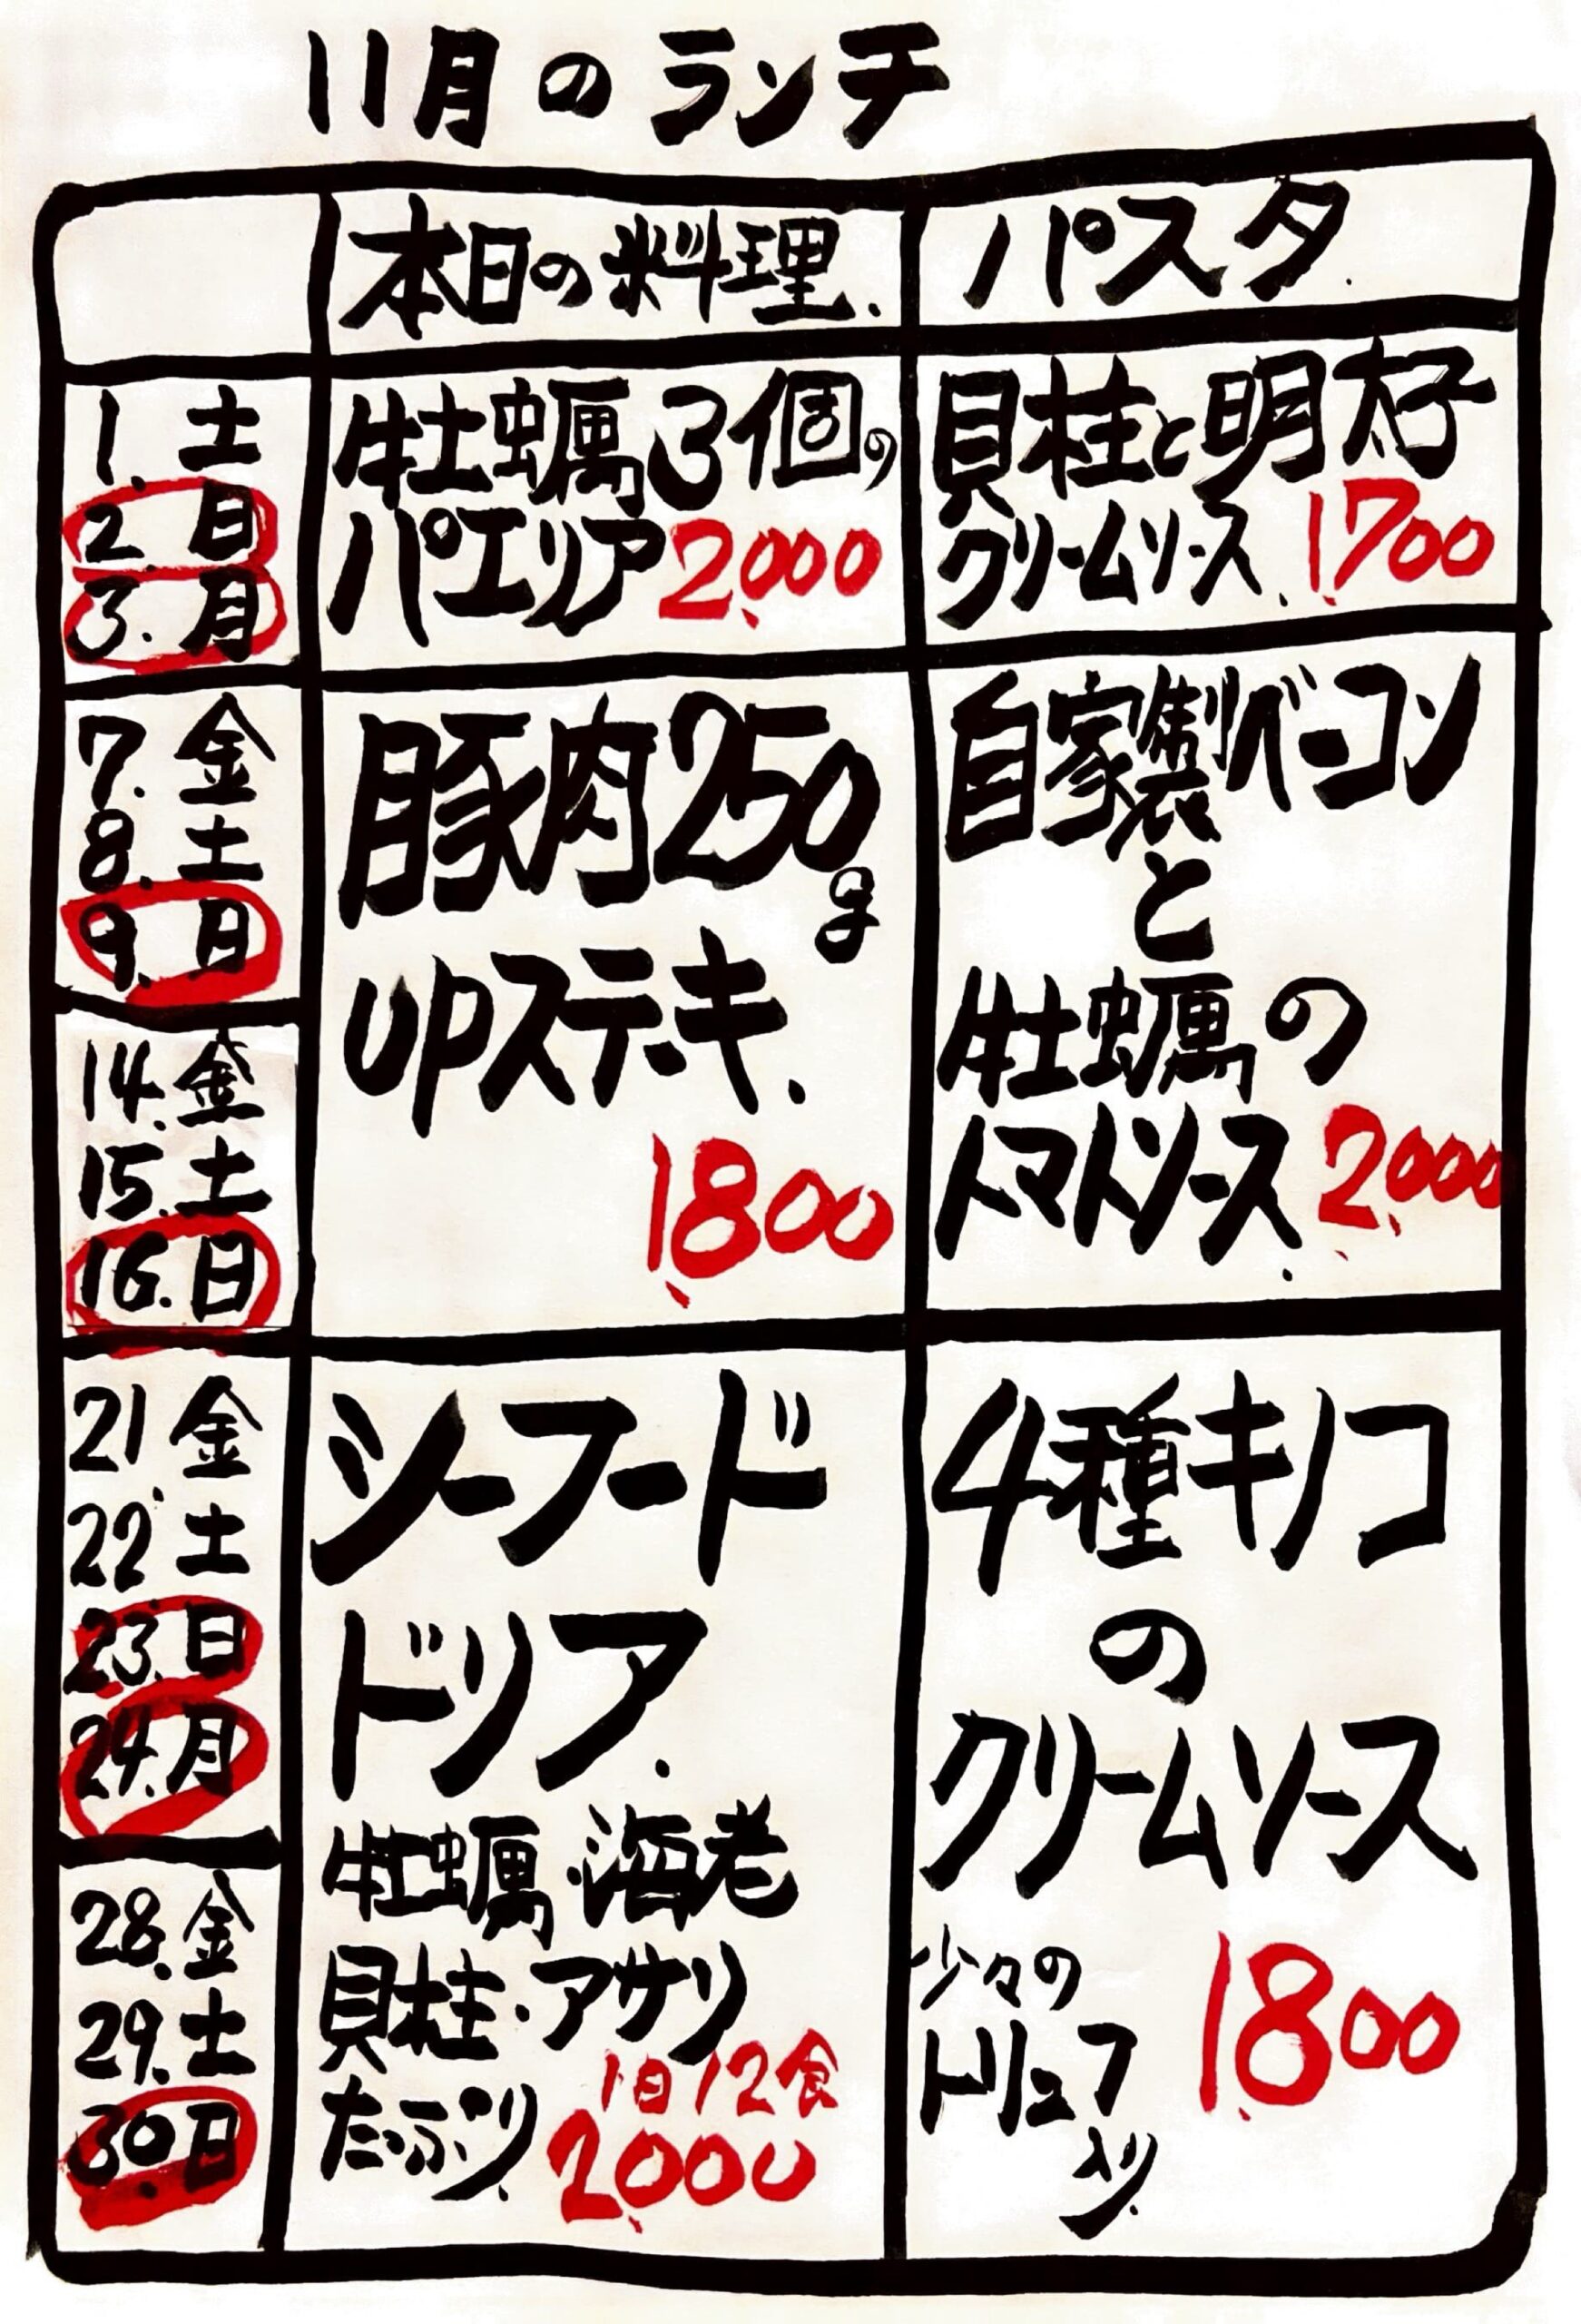 11月のランチ
本日の料理.
パスタ.
1. 土
2. 日
3. 月
牡蠣3個の
パエリア 2,000
貝柱と明太子
クリームソース. 1,700
7. 金
8. 土
9. 日
14. 金
15. 土
16. 日
豚肉250g
UPステーキ.
1,800
自家製ベーコン
と
牡蠣の
トマトソース. 2,000
21. 金
22 土
23. 日
24. 月
28. 金
29. 土
30. 日
シーフード
ドリア.
牡蠣・海老
貝柱・アサリ
たっぷり.
1日12食
2,000
4種キノコ
の
クリームソース
少々の
トリュフ
入り.
1,800